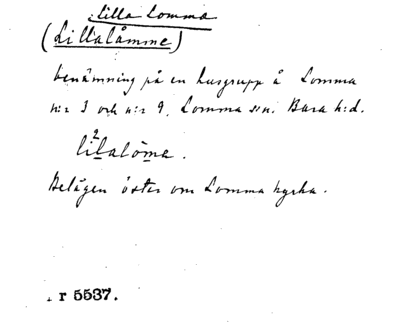 lilla Lomma
(Lillalåmme)
benämning på en husgrupp å Lomma
n:r 3 och n:r 9. Lomma s:n. Bara h:d.
2
lilalöma.
Belägen öster om Lomma kyrka.
r 5537.